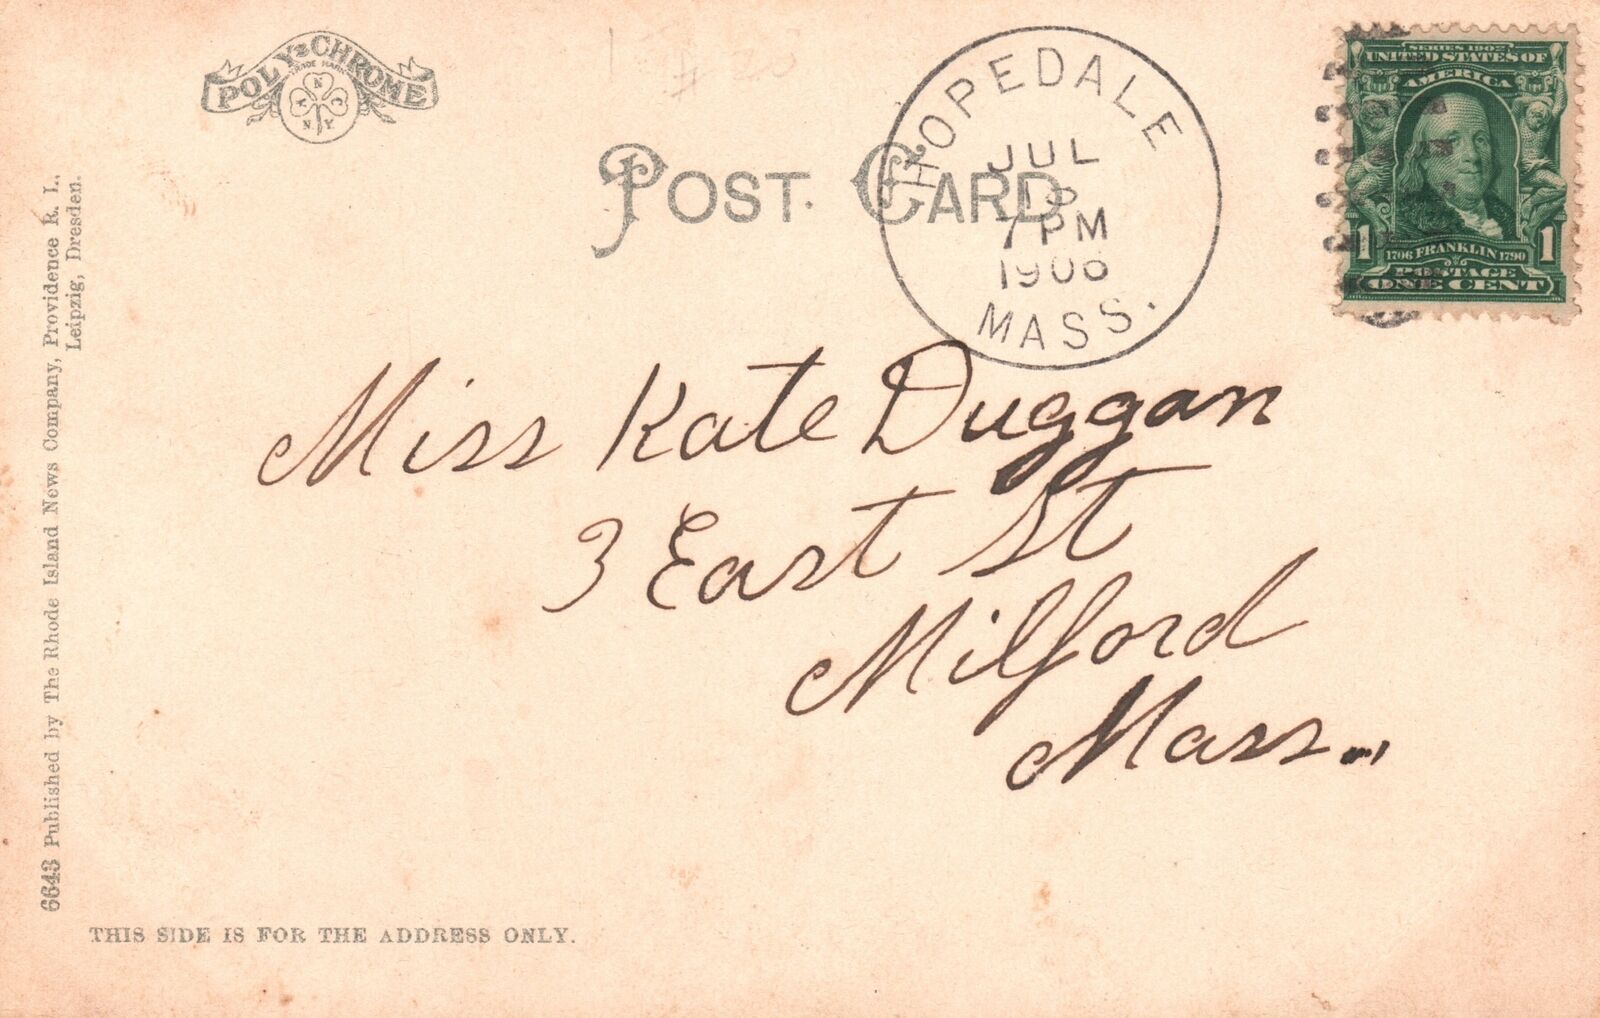 POLY-CHROME
TRADE MARK
A N C
N Y
POST CARD
HOPEDALE
JUL
13
7 PM
1906
MASS.
SERIES 1902
UNITED STATES OF
AMERICA
1 1
1706 FRANKLIN 1790
POSTAGE
ONE CENT
Miss Kate Duggan
3 East St
Milford
Mass.
6643 Published by The Rhode Island News Company, Providence R. I.,
Leipzig, Dresden.
THIS SIDE IS FOR THE ADDRESS ONLY.